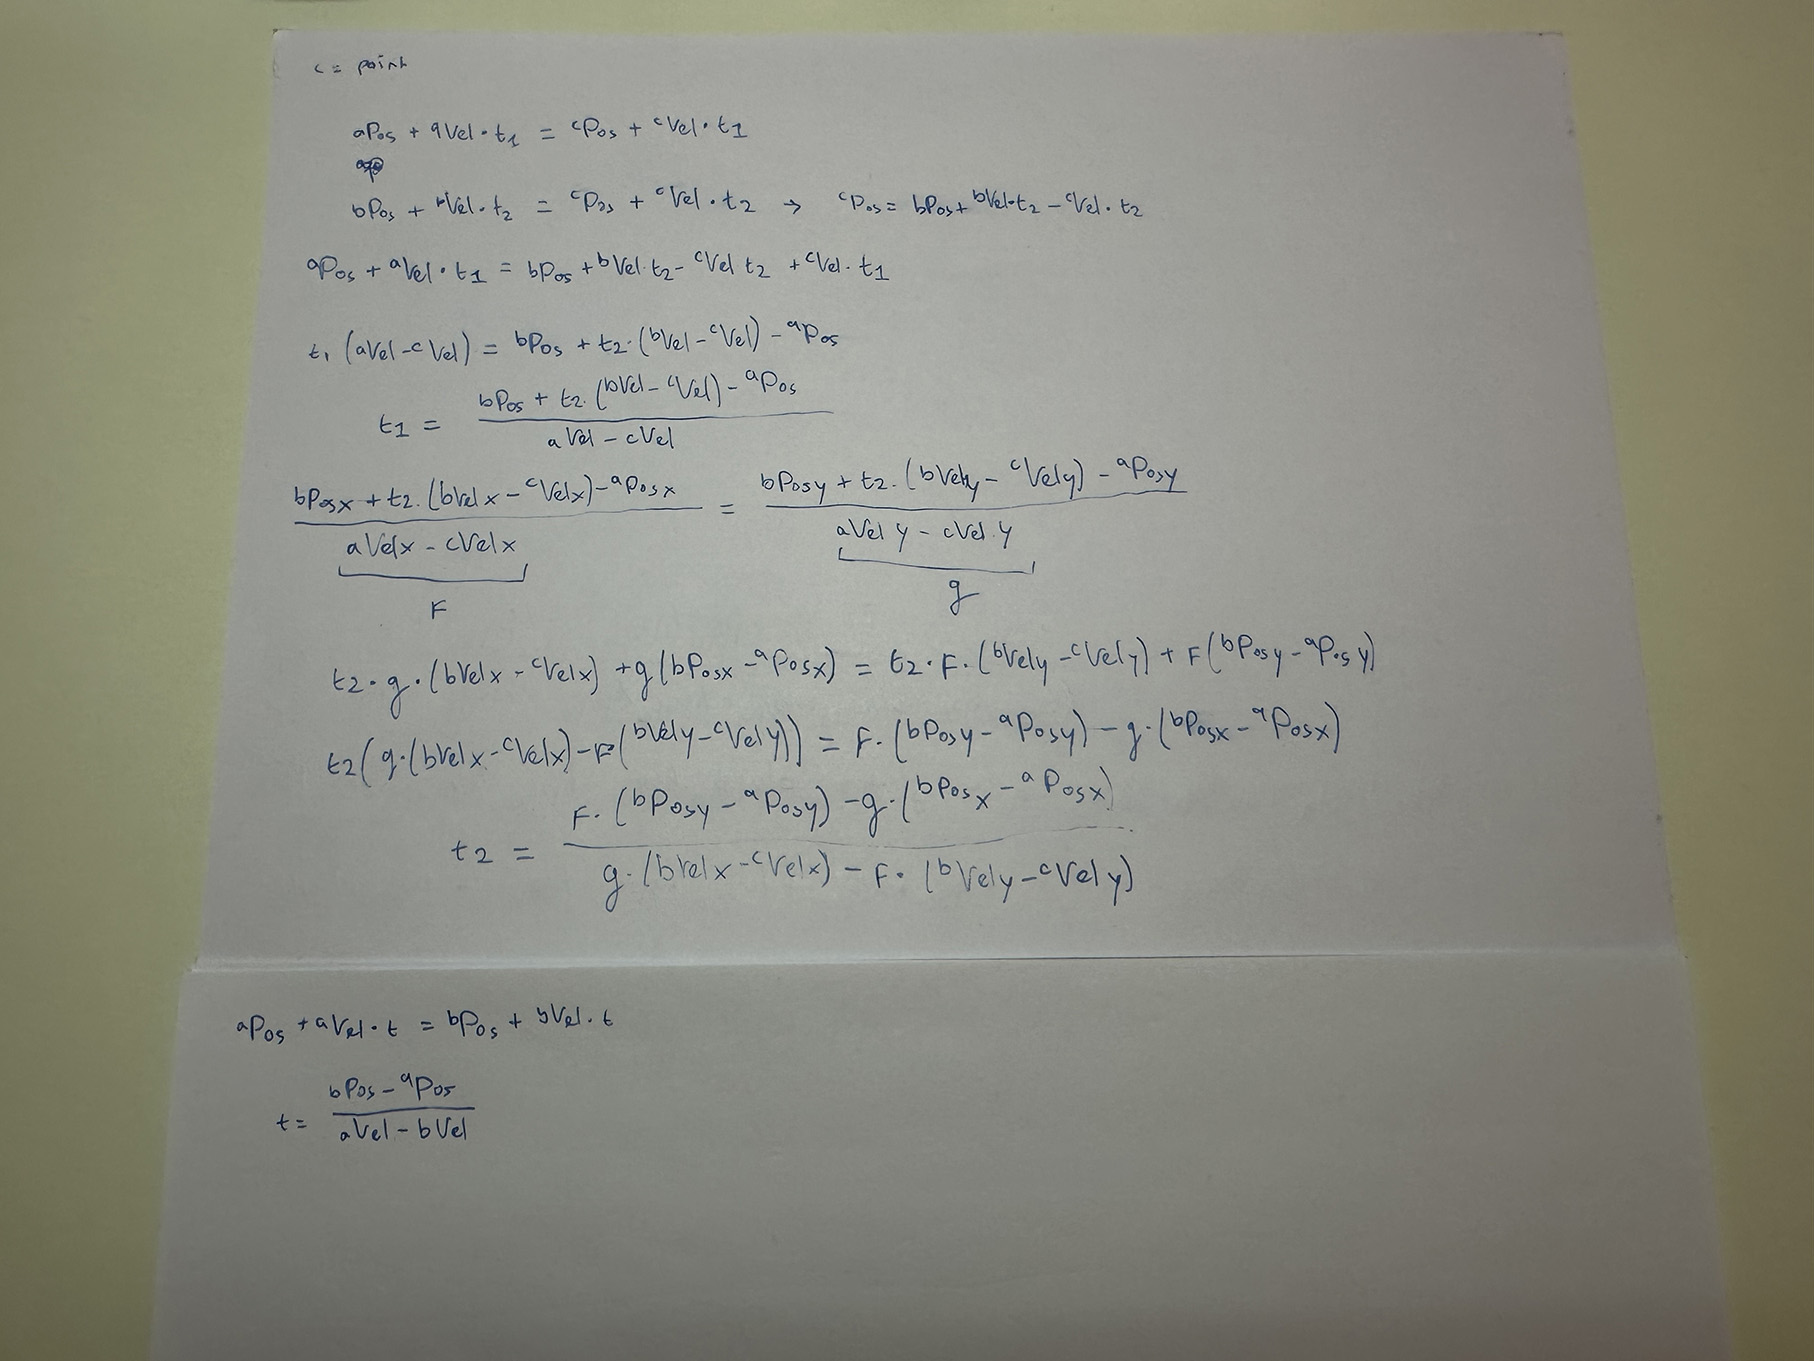 c = point
aPos + aVel · t1 = cPos + cVel · t1
bPos + bVel · t2 = cPos + cVel · t2 → cPos = bPos + bVel · t2 - cVel · t2
aPos + aVel · t1 = bPos + bVel · t2 - cVel t2 + cVel · t1
t1 (aVel - cVel) = bPos + t2 · (bVel - cVel) - aPos
t1 = (bPos + t2 · (bVel - cVel) - aPos) / (aVel - cVel)
(bPosx + t2 · (bVelx - cVelx) - aPosx) / (aVelx - cVelx) = (bPosy + t2 · (bVely - cVely) - aPosy) / (aVely - cVely)
F g
t2 · g · (bVelx - cVelx) + g (bPosx - aPosx) = t2 · F · (bVely - cVely) + F (bPosy - aPosy)
t2 (g · (bVelx - cVelx) - F · (bVely - cVely)) = F · (bPosy - aPosy) - g · (bPosx - aPosx)
t2 = (F · (bPosy - aPosy) - g · (bPosx - aPosx)) / (g · (bVelx - cVelx) - F · (bVely - cVely))
aPos + aVel · t = bPos + bVel · t
t = (bPos - aPos) / (aVel - bVel)